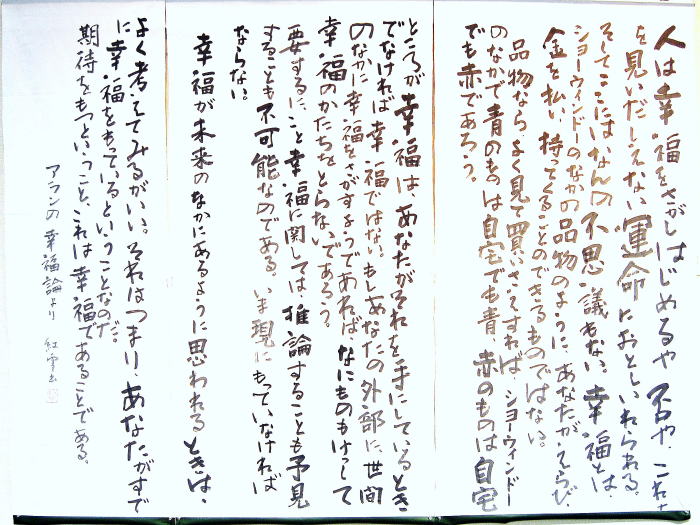 人は幸福をさがしはじめるや否や、これ
を見いだしえない運命におとしいれられる。
そしてここにはなんの不思議もない。幸福とは、
ショーウィンドーのなかの品物のように、あなたがえらび、
金を払い、持ってくることのできるものではない。
品物なら、よく見て買いさえすれば、ショーウィンドー
のなかで青のものは自宅でも青、赤のものは自宅
でも赤であろう。
ところが幸福は、あなたがそれを手にしているとき
でなければ幸福ではない。もしあなたの外部に、世間
のなかに幸福をさがすようであれば、なにものもけっして
幸福のかたちをとらないであろう。
要するに、こと幸福に関しては、推論することも予見
することも不可能なのである。いま現にもっていなければ
ならない。
幸福が未来のなかにあるように思われるときは、
よく考えてみるがいい。それはつまり、あなたがすで
に幸福をもっているということなのだ。
期待をもつということ、これは幸福であることである。
アランの幸福論より